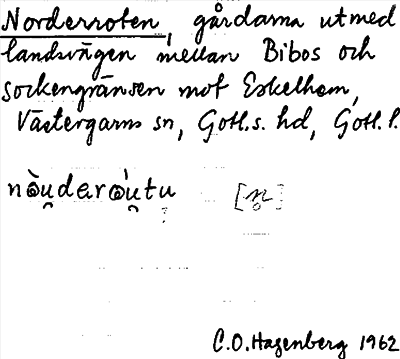 Norderroten, gårdarna utmed
landsvägen mellan Bibos och
sockengränsen mot Eskelhem,
Västergarns sn, Gotl.s. hd, Gotl. l.
C.O. Hagenberg 1962